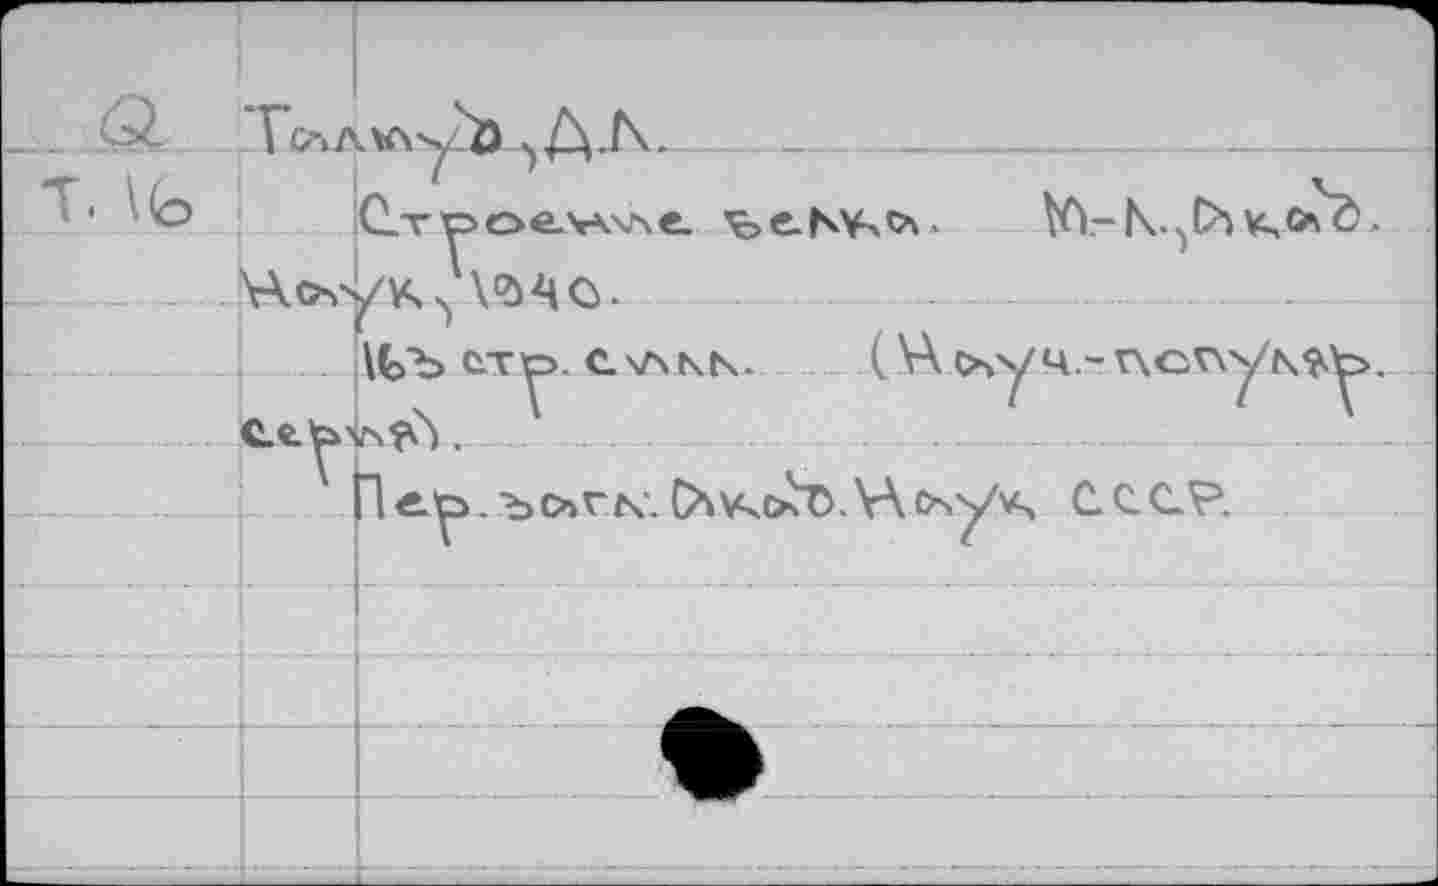 Q Талмуд, Д.Л.
Т.16 Строение белка. М.-Л., Акад.
Наук, 1940.
163 стр. с илл. (Науч.-популяр.
серия).
Пер. загл: Акад. Наук С.С.С.Р.